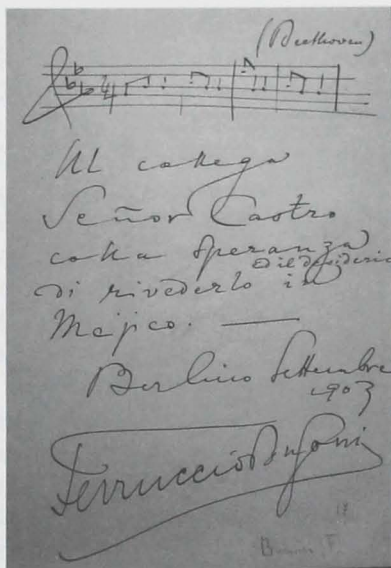 (Beethoven)
Al collega
Señor Castro
colla speranza
e il desiderio
di rivederlo in
Mejico. —
Berlino Settembre
1903
Ferruccio Busoni
Busoni, F.